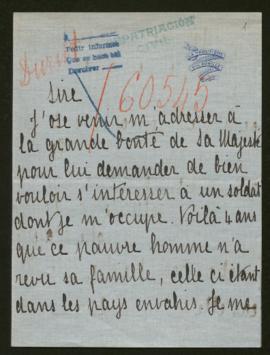 REPATRIACIÓN
Pedir informes
Devolver
Durut
160545
Sire
J'ose venir m'adresser à
la grande bonté de Sa Majesté
pour lui demander de bien
vouloir s'intéresser à un soldat
dont je m'occupe. Voilà 4 ans
que ce pauvre homme n'a
revu sa famille, celle ci étant
dans les pays envahis. Je me